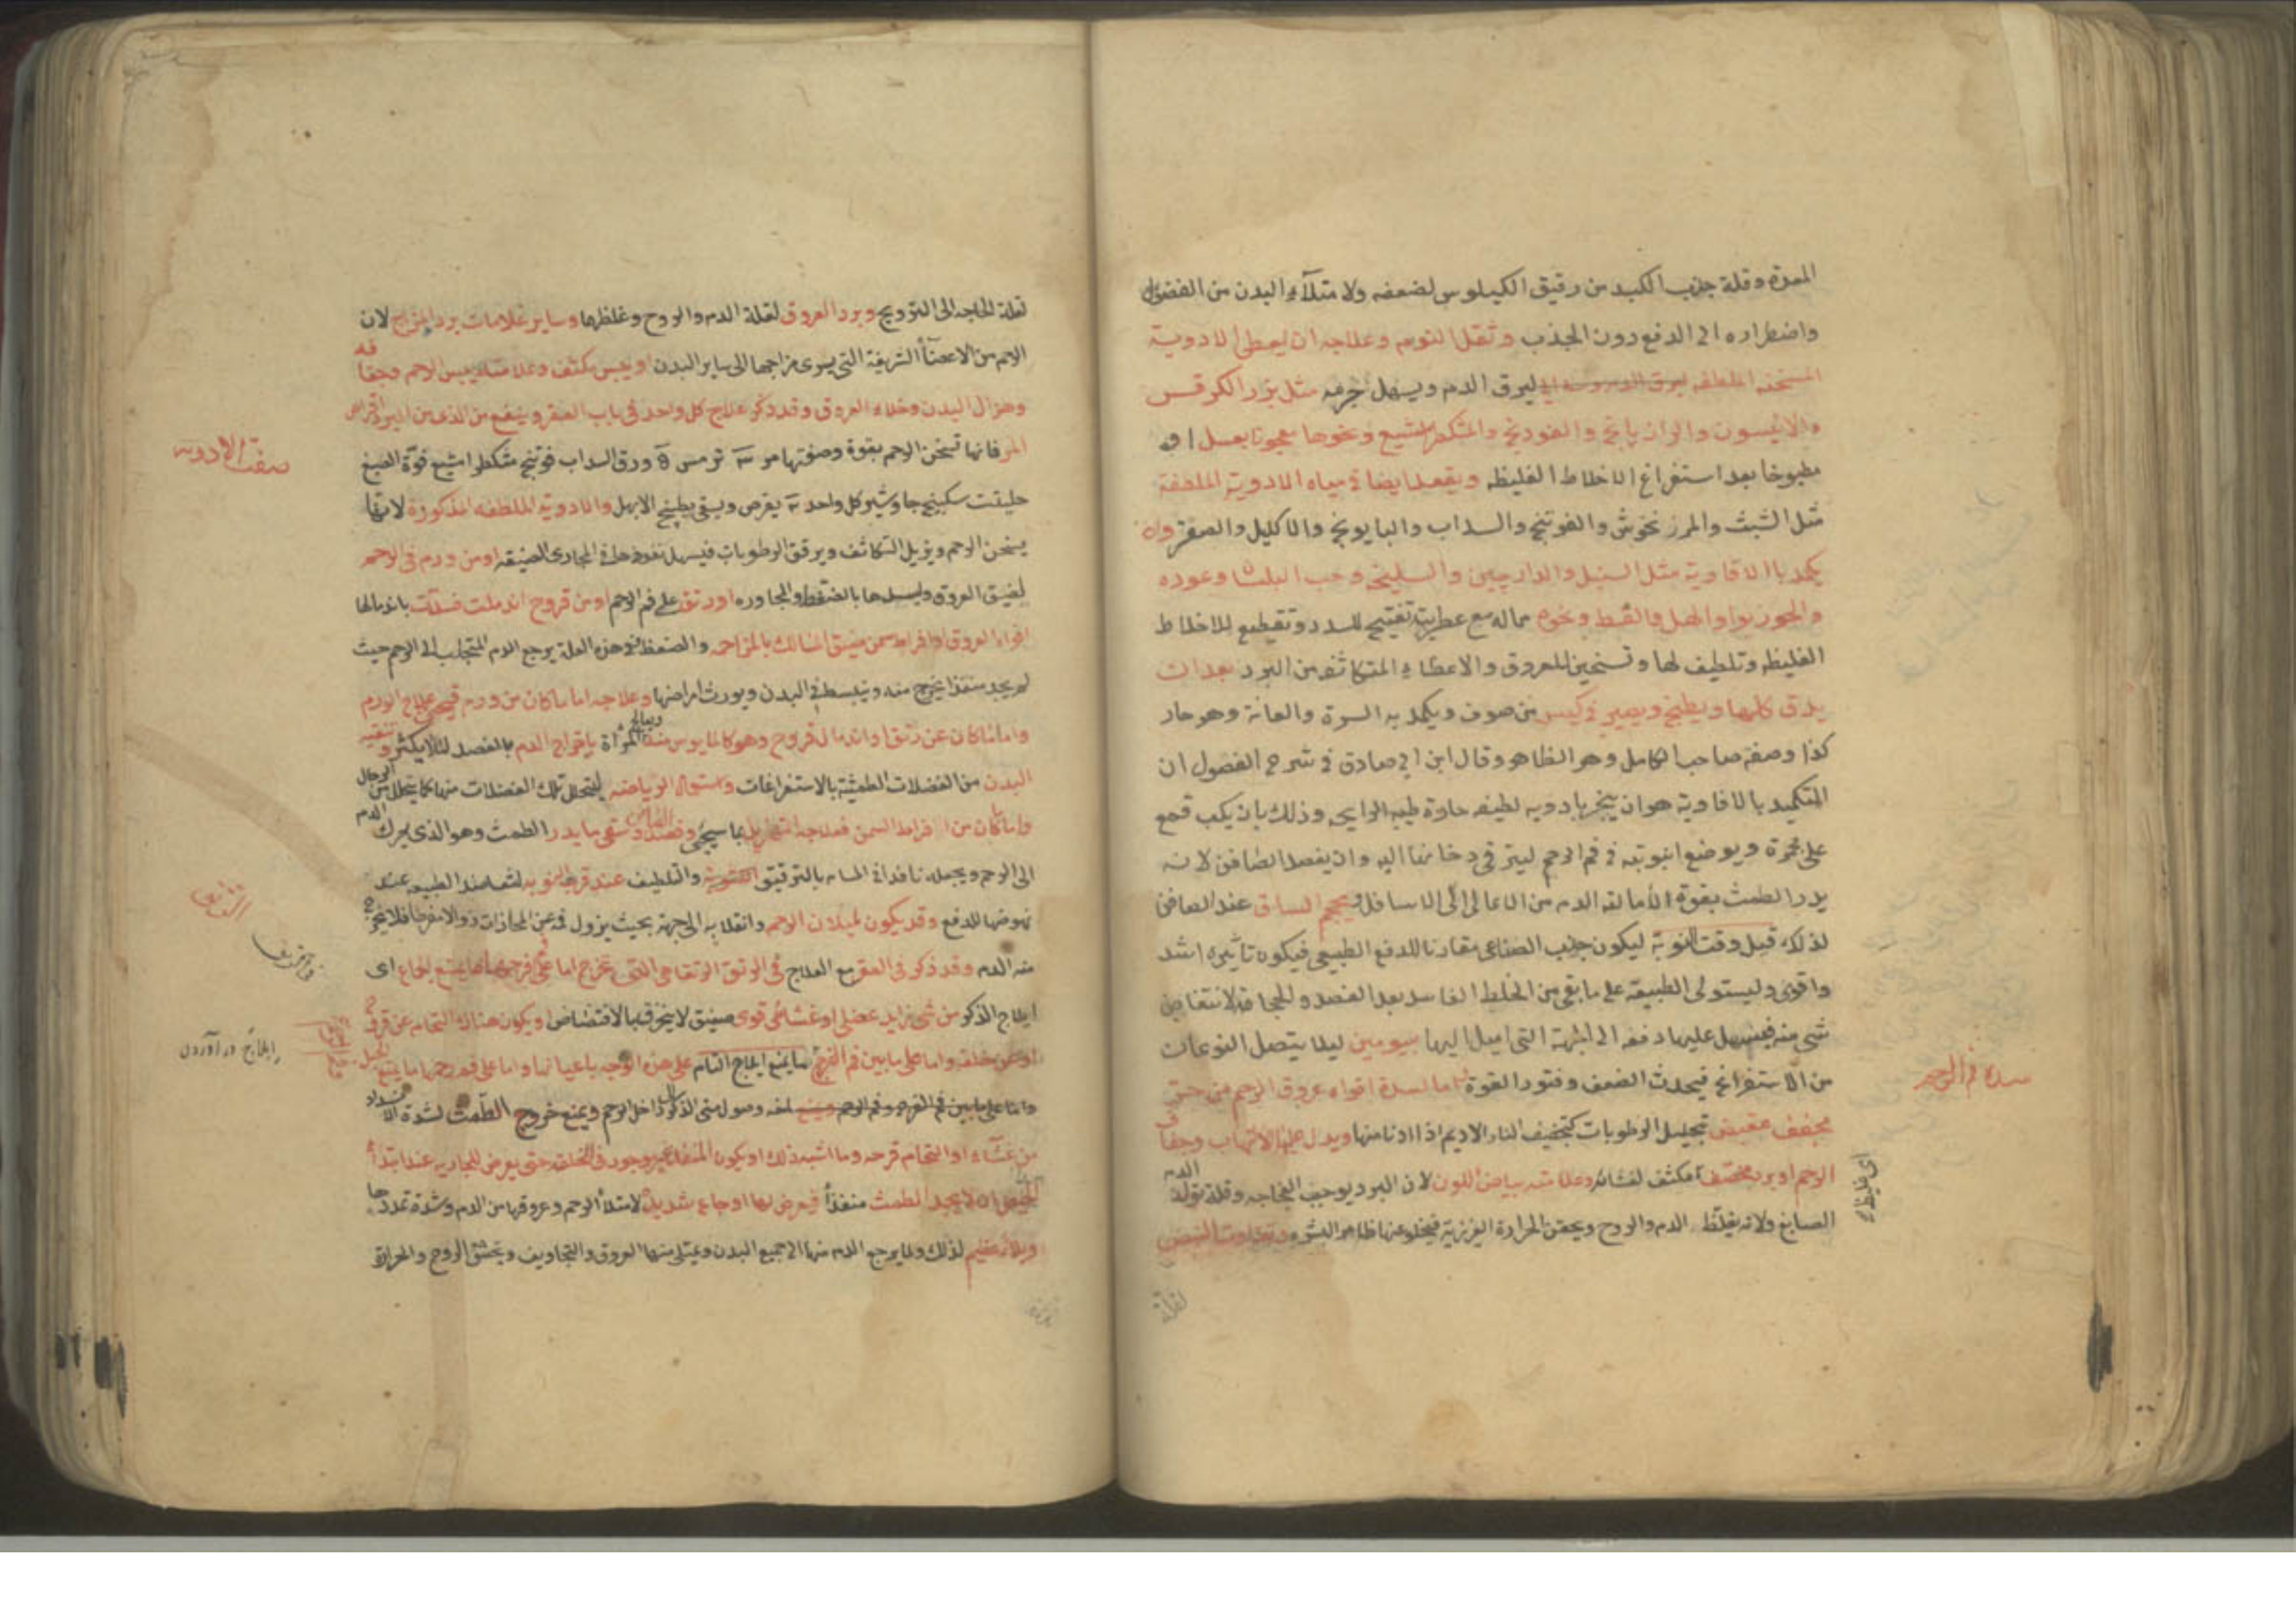 المعدة وقلة جذب الكبد من رقيق الكيلوس لضعفه ولامتلاء البدن من الفضول
واضطراره الى الدفع دون الجذب وثقل النوم وعلاجه ان يعطى الادوية
المسخنه الملطفه ليرق الدم ويسهل خروجه مثل بزر الكرفس
والانيسون والرازيانج والفودنج والمشكطرامشيع ونحوها معجونا بعسل او
مطبوخا بعد استفراغ الاخلاط الغليظه ويقعد ايضا في مياه الادوية الملطفة
مثل الشبث والمرزنخوش والفوتنج والسداب والبابونج والاكليل والصعتر وان
يكمد بالافاوية مثل السنبل والدارچين والسليخه وحب البلسان وعوده
والجوزبوا والهل والقسط ونحوه مما له مع عطريته تفتيح للسدد وتقطيع للاخلاط
الغليظه وتلطيف لها وتسخين للعروق والاعضاء المتكاثفه من البرد بعد ان
يدق كلها ويطبخ ويصير في كيس من صوف ويكمد به السرة والعانة وهو حار
كذا وصفه صاحب الكامل وهو الظاهر وقال ابن ابي صادق في شرح الفصول ان
التكميد بالافاوية هو ان يبخر بادويه لطيفه حادة طيبه الرايحه وذلك بان يكب قمع
على مجمرة ويوضع انبوبته في فم الرحم ليترقى دخانها اليه وان يفصد الصافن لانه
يدر الطمث بقوة لامالته الدم من الاعالى الى الاسافل ويحجم الساق عند الصافن
لذلك قبل وقت النوبة ليكون جذب الصناعى مقارنا للدفع الطبيعى فيكون تاثيره اشد
واقوى وليستولى الطبيعة على ما بقى من الخلط الفاسد بعد الفصد والحجامة لانتقاص
شى منه فيسهل عليها دفعه الى الجهة التى اميل اليها بيومين ليلا يتصل النوعان
من الاستفراغ فيحدث الضعف وفتور القوة اما لسدة افواه عروق الرحم من حر
مجفف مقبض بتحليل الرطوبات كتجفيف النار الاديم اذا ادنا منها ويدل عليه الالتهاب وجفاف
الرحم او برد مخصف اى مكثف لفسائه وعلامته بياض اللون لان البرد يوجب الفجاجه وقلة تولد الدم
الصابغ ولانه يغلظ الدم والروح ويحقن الحرارة الغريزية فيخلو عنها ظاهر البشره وتفاوت النبض
سدة فم الرحم
اى غليظ
لقلة
لقلة الحاجه الى الترويح وبرد العروق لقلة الدم والروح وغلظها وساير علامات برد المزاج لان
الرحم من الاعضاء الشريفة التى يسرى مزاجها الى ساير البدن او يبس مكثف وعلامته يبس الرحم وجفافه
وهزال البدن وخلاء العروق وقد ذكر علاج كل واحد فى باب العقر وينفع من الذى من البرد اقراص
المر فانها تسخن الرحم بقوة وصفتها مر ترمس ورق السداب فوتنج مشكطرامشيع فوة الصبغ
حلتيت سكبينج جاوشير كل واحد يقرص ويسقى بطبيخ الابهل والادوية الملطفه المذكورة لانها
يسخن الرحم ويزيل التكاثف ويرقق الرطوبات فيسهل نفوذها فى المجارى الضيقه او من ورم فى الرحم
لضيق العروق وليسدها بالضغط والمجاوره او رتق على فم الرحم او من قروح اندملت فسدت باندمالها
افواه العروق او افراط سمن مضيق المسالك بالمزاحمه والضغط فى هذه العلة يرجع الدم المتجلب الى الرحم حيث
لم يجد منفذا يخرج منه وينبسط فى البدن ويورث امراضها وعلاجه اما ما كان من ورم فيجئ علاج الورم
واما ما كان عن رتق او اندمال قروح وهو كالمايوس منه ويعالج المراة باخراج الدم بالفصد لئلا يكثر وتنقيه
البدن من الفضلات الطمثية بالاستفراغات واستعمال الرياضه ليتحلل تلك الفضلات منها كما يتحلل من الرجال
واما ما كان من افراط السمن فعلاجه التهزيل بما سيجئ وفصد الصافن وسقى ما يدر الطمث وهو الذى يحرك الدم
الى الرحم ويجعله نافذا فى المسام بالترقيق والتلطيف عند قرب النوبه لتعاضد الطبيعه عند
نهوضها للدفع وقد يكون لميلان الرحم وانقلابه الى جهة بحيث يزول فمه عن المحاذات والانفراجا فلا يخرج
منه الدم وقد ذكر فى العقر مع العلاج فى الرتق الرتقا هى التى تخرج اما على فم فرجها ما يمنع الجماع اى
ايلاج الذكر من شى زايد عضلى او غشائى قوى ضيق لا ينخرق بالافتضاض او يكون هناك التحام عن قرحة
او عن خلقه واما على ما بين فم الفرج ما يمنع ايلاج التام على هذه الوجه باعيانها واما على فم رحمها ما يمنع الحبل
واما على ما بين فم الفرج وفم الرحم لمنعه وصول منى الذكر داخل الرحم ويمنع خروج الطمث لشدة الانسداد
من غشاء او التحام قرحه وما اشبه ذلك او يكون المنفذ غير موجود فى الخلقه حتى يعرض للجاريه عند ابتداء
الحيض ان لا يجد الطمث منفذا فيعرض لها اوجاع شديدة لامتلاء الرحم وعروقها من الدم وشدة تمددها
وبلاء عظيم لذلك ولما يرجع الدم منها الى جميع البدن ويمتلى منها العروق والتجاويف ويختنق الروح والحرارة
صفت الادويه
ايلاج در آوردن